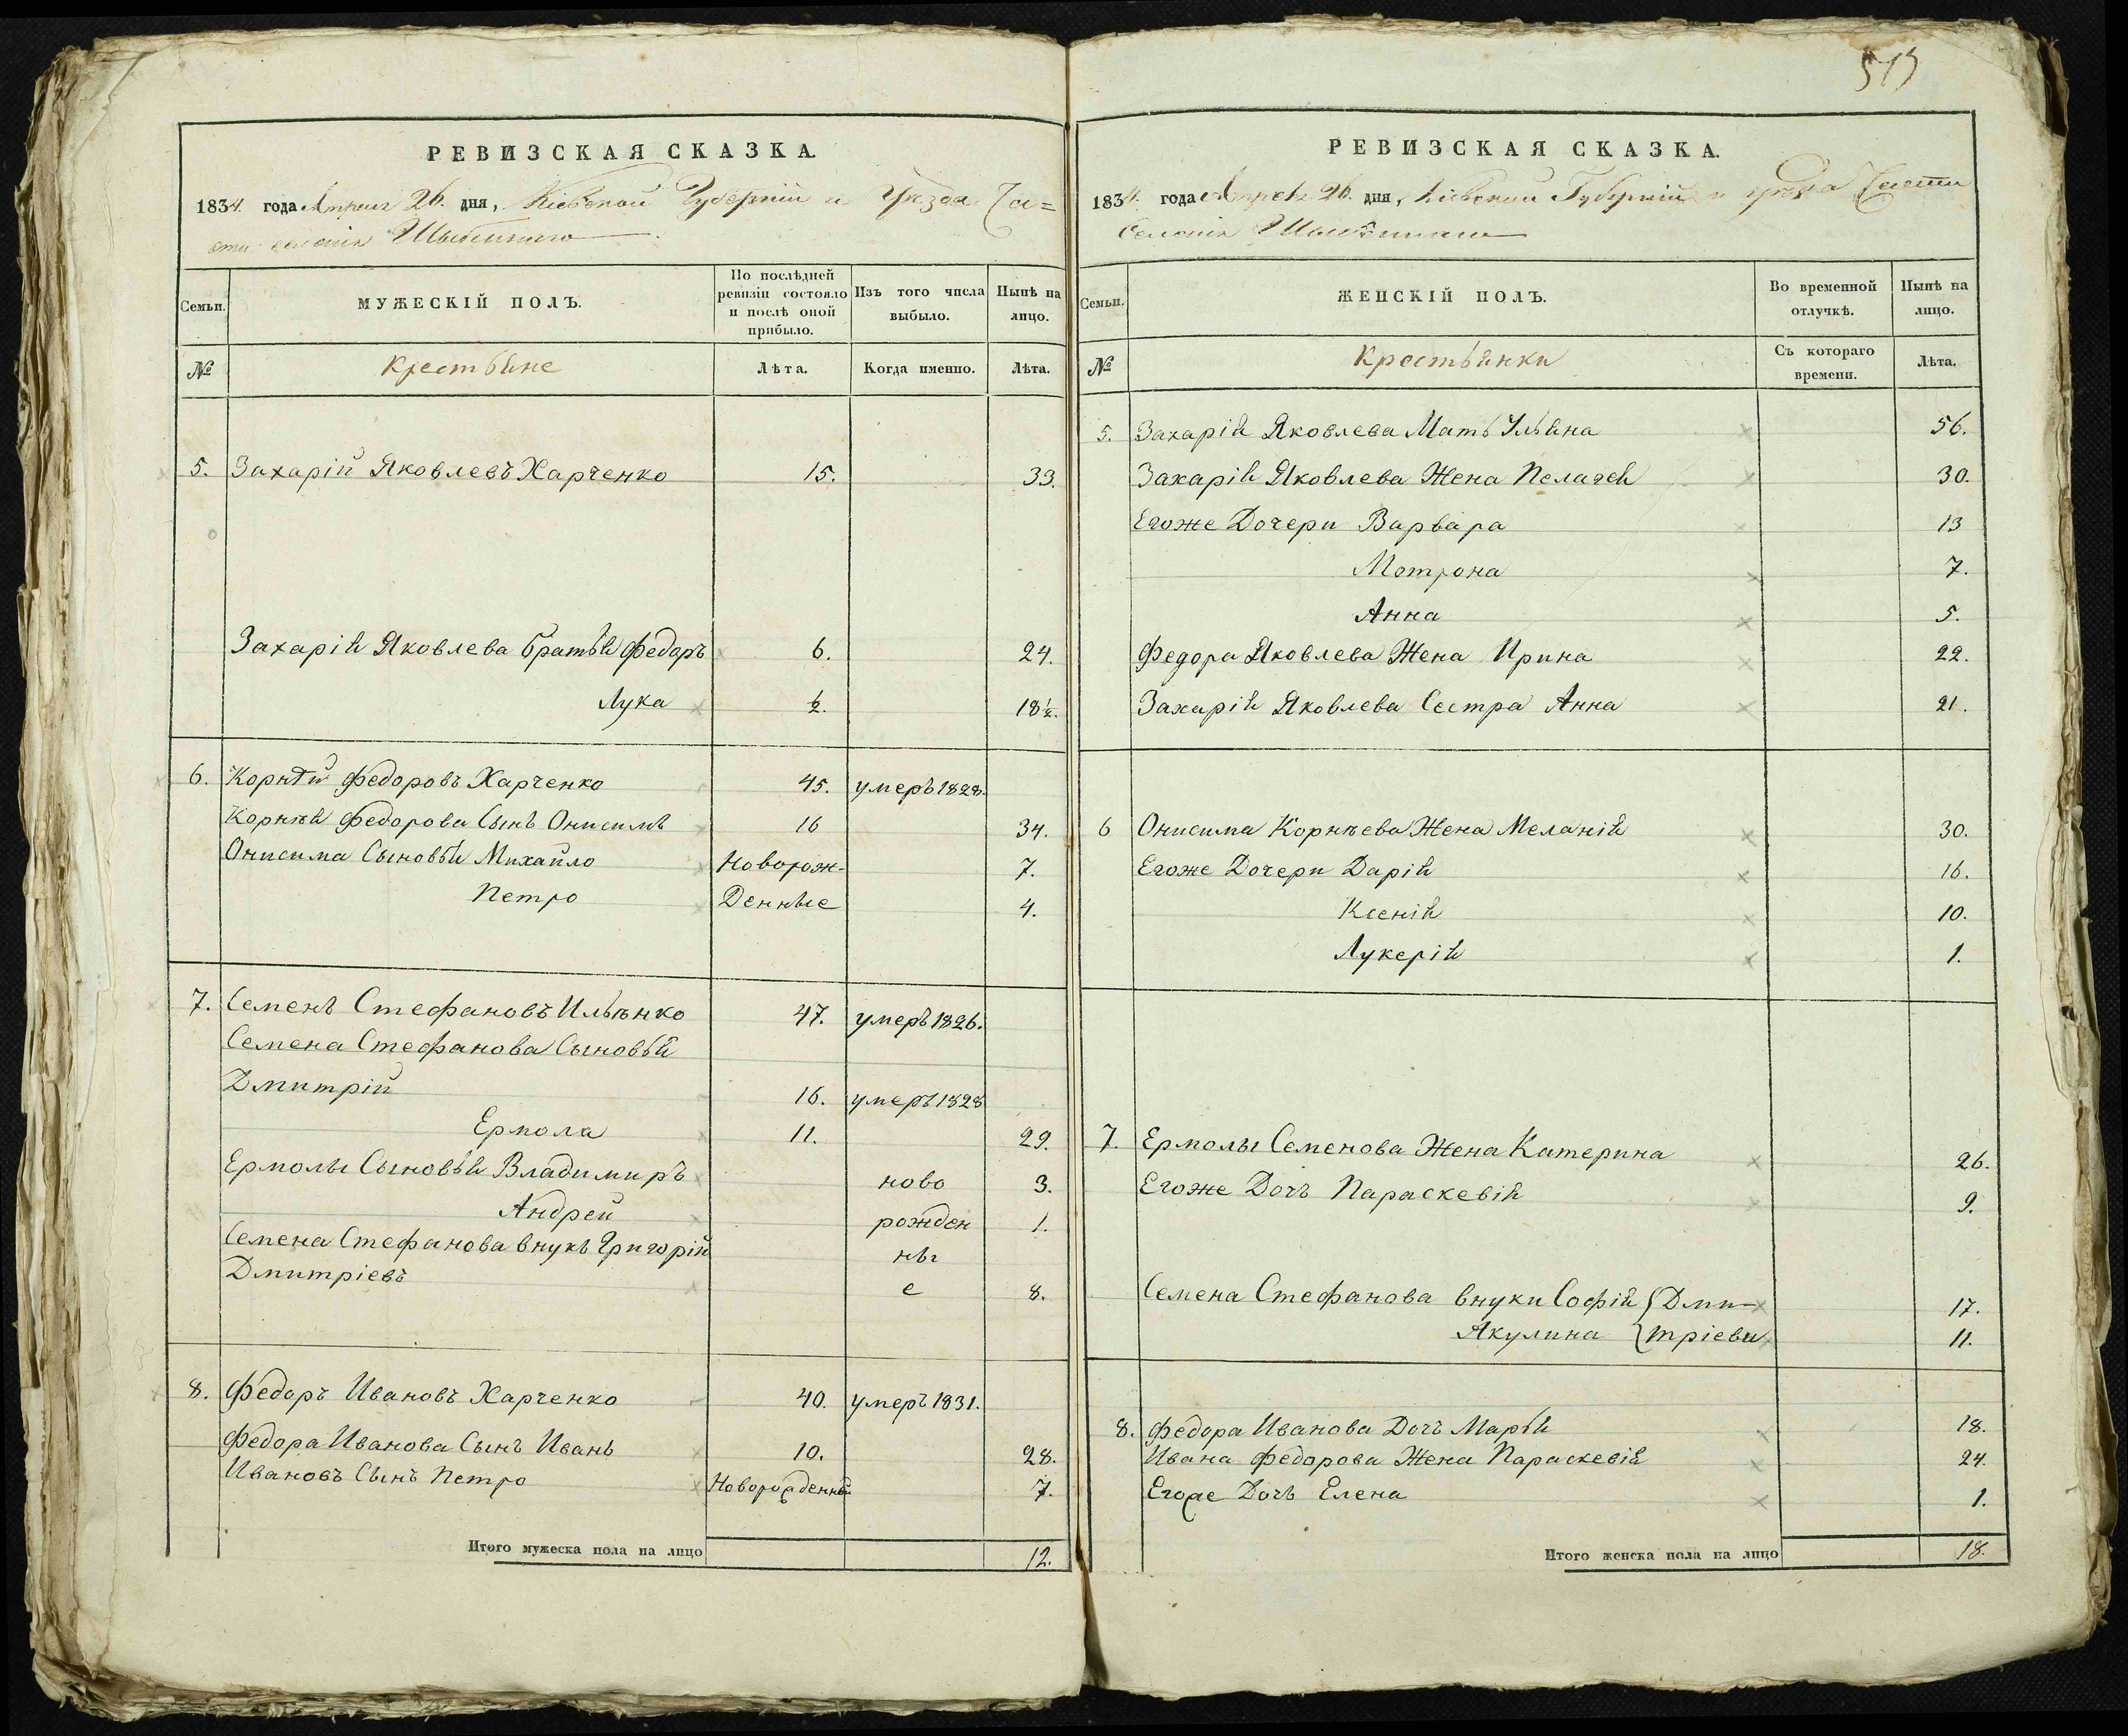 РЕВИЗСКАЯ СКАЗКА.
1834. года Апреля 26. дня, Кіевской Губерніи и Уезда Ча=
сти селенія
Семьи.
МУЖЕСКІЙ ПОЛЪ.
По послѣдней ревизіи состояло и послѣ оной прибыло.
Изъ того числа выбыло.
Нынѣ на лицо.
№
Крестьяне
Лѣта.
Когда именно.
Лѣта.
5. Захарій Яковлевъ Харченко 15. 33.
Захарія Яковлева братья Федоръ 6. 24.
Лука ½. 18½.
6. Корнѣй Федоровъ Харченко 45. умеръ 1828.
Корнѣя Федорова Сынъ Онисимъ 16 34.
Онисима Сыновья Михайло Новорож- 7.
Петро Денные 4.
7. Семенъ Стефановъ Ильѣнко 47. умеръ 1826.
Семена Стефанова Сыновья
Дмитрій 16. умеръ 1828
Ермола 11. 29.
Ермолы Сыновья Владимиръ ново 3.
Андрей рожден 1.
Семена Стефанова внукъ Григорій ны
Дмитріевъ е 8.
8. Федоръ Ивановъ Харченко 40. умеръ 1831.
Федора Иванова Сынъ Иванъ 10. 28.
Ивановъ Сынъ Петро Новорожденный 7.
Итого мужеска пола на лицо 12.
513
РЕВИЗСКАЯ СКАЗКА.
1834. года Апреля 26. дня, Кіевской Губерніи и уезда Части
Селенія
Семьи.
ЖЕНСКІЙ ПОЛЪ.
Во временной отлучкѣ.
Нынѣ на лицо.
№
Крестьянки
Съ котораго времени.
Лѣта.
5. Захарія Яковлева Мать Ульяна 56.
Захарія Яковлева Жена Пелагея 30.
Егоже Дочери Варвара 13
Мотрона 7.
Анна 5.
Федора Яковлева Жена Ирина 22.
Захарія Яковлева Сестра Анна 21.
6 Онисима Корнѣева Жена Меланія 30.
Егоже Дочери Дарія 16.
Ксенія 10.
Лукерія 1.
7. Ермолы Семенова Жена Катерина 26.
Егоже Дочъ Параскевія 9.
Семена Стефанова внуки Софія { Дми- 17.
Акулина { тріевы 11.
8. Федора Иванова Дочъ Марья 18.
Ивана Федорова Жена Параскевія 24.
Егоже Дочь Елена 1.
Итого женска пола на лицо 18.